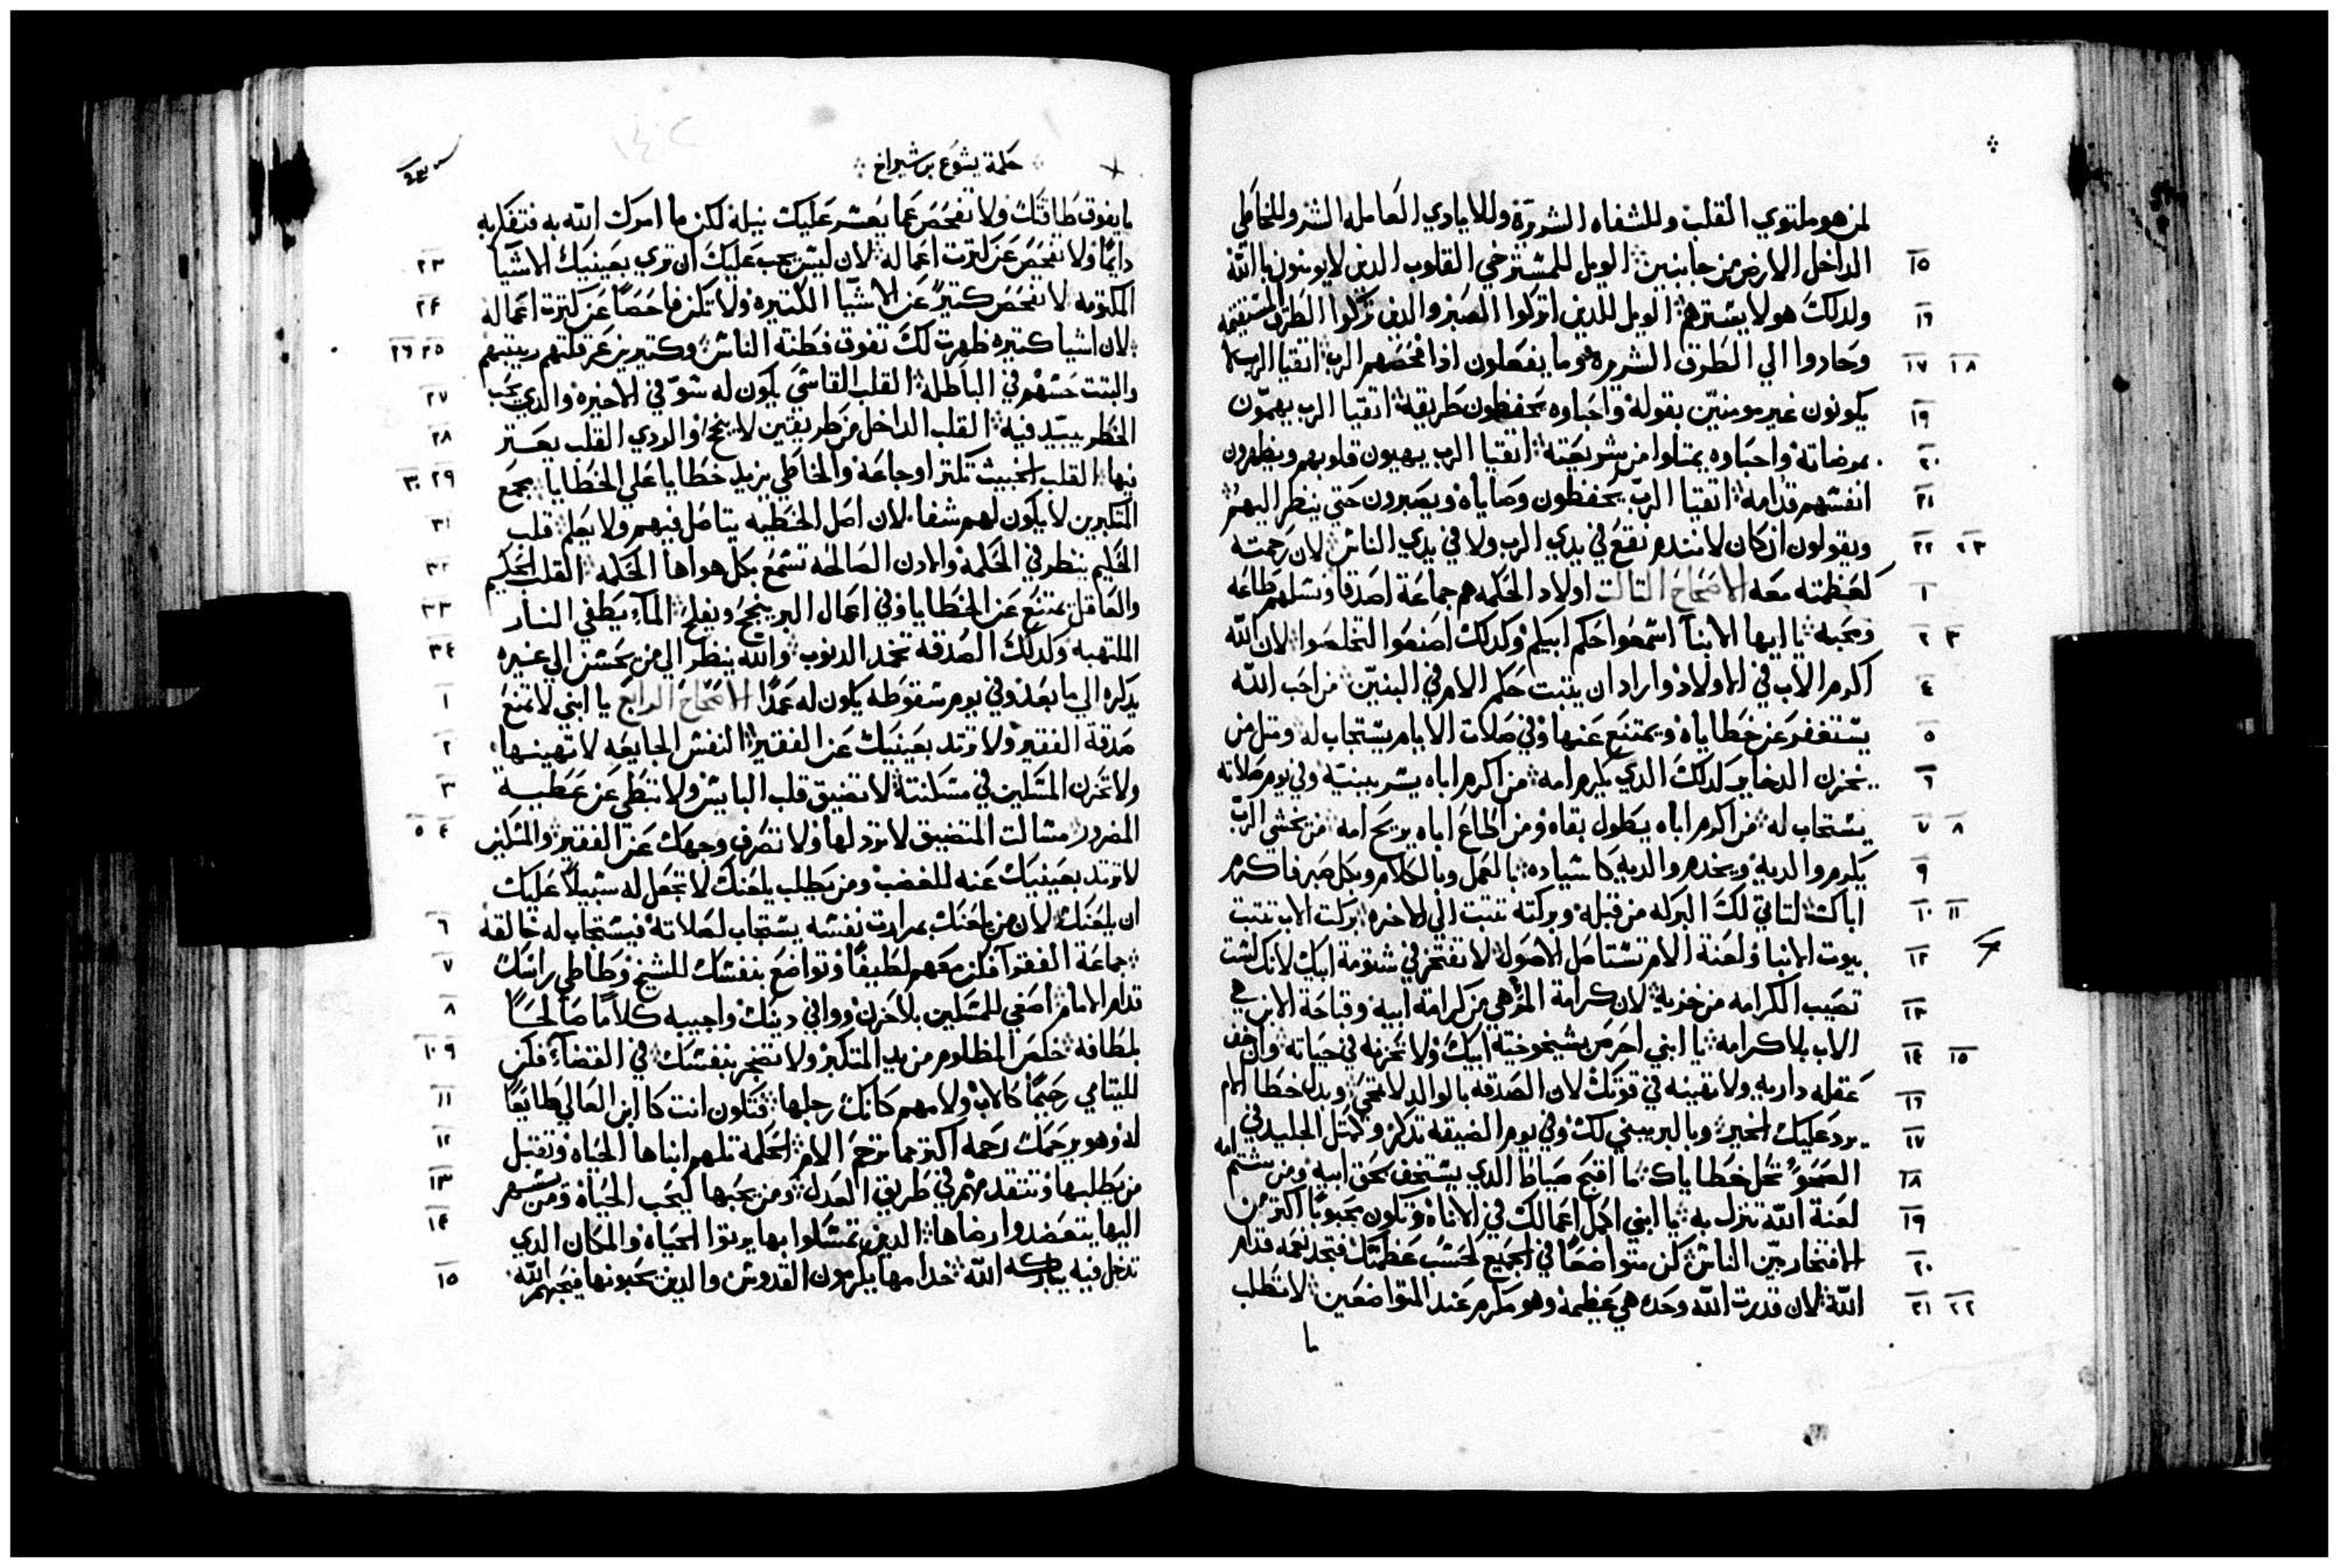 لمن هو ملتوي القلب وللشفاه الشريرة وللايادي العامله الشر وللخاطي
١٥ الداخل الارض من جانبين الويل للمسترخي القلوب الذين لا يومنون بالله
١٦ ولدلك هولا يسترهم الويل للدين اتركوا الصبر والدين تركوا الطرق المستقيمه
١٧ ١٨ وحادوا الي الطرق الشريره وما يفعلون ادا فحصهم الرب اتقيا الرب لا
١٩ يكونون غير مومنين بقوله واحباوه يحفظون طريقه اتقيا الرب يهمون
٢٠ بمرضاته واحباوه يمتلوا من شريعته اتقيا الرب يهيون قلوبهم ويطهرون
٢١ انفسهم قدامه اتقيا الرب يحفظون وصاياه ويصبرون حتي ينظر اليهم
٢٢ ٢٣ ويقولون ان كان لا نندم نقع في يدي الرب ولا في يدي الناس لان رحمته
١ كعظمته معه الاصحاح التالت اولاد الحكمه هم جماعة اصدقا ونسلهم طاعه
٢ ٣ ومحبه يا ايها الابنا اسمعوا حكم ابيكم وكدلك اصنعوا لتخلصوا لان الله
٤ اكرم الاب في الاولاد واراد ان يتبت حكم الام في البنين من احب الله
٥ يستغفر عن خطاياه ويمتنع عنها وفي صلات الايام يستجاب له ومتل من
٦ يخزن الدخاير كدلك الدي يكرم امه من اكرم اباه يسر ببنيه وفي يوم صلاته
٧ ٨ يستجاب له من اكرم اباه يطول بقاه ومن اطاع اباه يريح امه من يخشي الرب
٩ يكرم والديه ويخدم والديه كاسياده بالعمل وبالكلام وبكل صبر فاكرم
١٠ ١١ اباك لتاتي لك البركه من قبله وبركته تتبت الي الاخره بركت الاب تتبت
١٢ بيوت الابنا ولعنة الام تستاصل الاصول لا تفتخر في شتومة ابيك لانك لست
١٣ تصيب الكرامه من خزيه لان كرامة المر هي من كرامة ابيه وقباحة الابن هي
١٤ ١٥ الاب بلا كرامه يا ابني احرص بشيخوخية ابيك ولا تحزنه في حياته وان خف
١٦ عقله داريه ولا تهينه في قوتك لان الصدقه بالوالد لا تمحي وبدل خطا الام
١٧ يرد عليك الخير وبالبر يبني لك وفي يوم الضيقه تدكر وكمتل الجليد في
١٨ الصحو تحل خطاياك ما اقبح صياط الدي يستخف بحق ابيه ومن يشتم امه
١٩ لعنة الله تنزل به يا ابني اكمل اعمالك في الاناه وتكون محبوبا اكتر من
٢٠ الافتخار بين الناس كن متواضعا في الجميع لحسب عظمتك فتجد نعمه قدام
٢١ ٢٢ الله لان قدرت الله وحده هي عظيمه وهو مكرم عند المتواضعين لا تطلب
ما
حكمة يشوع بن شيراخ
ما يفوق طاقتك ولا تفحص عما يعسر عليك نيله لكن ما امرك الله به فتفكر به
٢٣ دايما ولا تفحص عن كترت اعماله لان ليس يجب عليك ان تري بعينيك الاشيا
٢٤ المكتومه لا تفحص كتيرا عن الاشيا الكتيره ولا تكن فاحصا عن كترت اعماله
٢٥ ٢٦ لان اشيا كتيره ظهرت لك تفوق فطنة الناس وكتيرين عرقلتهم ريبتهم
٢٧ والبتت حسهم في الباطله القلب القاسي يكون له سو في الاخيره والدي يحب
٢٨ الخطر يبيد فيه القلب الداخل من طريقين لا ينجح والردي القلب يعتر
٢٩ ٣٠ فيها القلب الخبيث تكتر اوجاعه والخاطي يزيد خطايا علي الخطايا مجمع
٣١ المتكبرين لا يكون لهم شفا لان اصل الخطيه يتاصل فيهم ولا يعلم قلب
٣٢ الحكيم ينظر في الحكمه والادن الصالحه تسمع بكل هواها الحكمه القلب الحكيم
٣٣ والعاقل يمتنع عن الخطايا وفي اعمال البر ينجح ويفلح المآء يطفي النار
٣٤ الملتهبه وكدلك الصدقه تخمد الدنوب والله ينظر الي من يحسن الي غيره
١ يدكره الي ما بعد وفي يوم سقوطه يكون له عمدا الاصحاح الرابع يا ابني لا تمنع
٢ صدقة الفقير ولا ترتد بعينيك عن الفقير النفس الجايعه لا تهينها
٣ ولا تحزن المسكين في مسكنته لا تضيق قلب البايس ولا تبطي عن عطية
٤ ٥ المضرور مسالت المتضيق لا تردلها ولا تصرف وجهك عن الفقير والمسكين
لا ترتد بعينيك عنه للغضب ومن يطلب يلعنك لا تجعل له سبيلا عليك
٦ ان يلعنك لان من يلعنك بمرارت نفسه يستجاب لصلاته فيستجاب له خالقه
٧ جماعة الفقرآ فكن معهم لطيفا وتواضع بنفسك للشيخ وطاطي راسك
٨ قدام الامام اصغي للمسكين بلا حزن وواني دينك واجيبه كلاما صالحا
٩ ١٠ بلطافه خلص المظلوم من يد المتكبر ولا تضجر بنفسك في القضآء فكن
١١ لليتامي رحيما كالاب ولامهم كانك رجلها فتكون انت كابن العالي طايعا
١٢ له وهو يرحمك رحمه اكتر مما ترحم الام الحكمه تلهم ابناها الحياه وتقبل
١٣ من يطلبها وتتقدمهم في طريق العدل ومن يحبها يحب الحياه ومن يسهر
١٤ اليها يتعضدوا رضاها الدين تمسكوا بها يرتوا الحياه والمكان الدي
١٥ تدخل فيه يباركه الله خدامها يكرمون القدوس والدين يحبونها فيحبهم الله